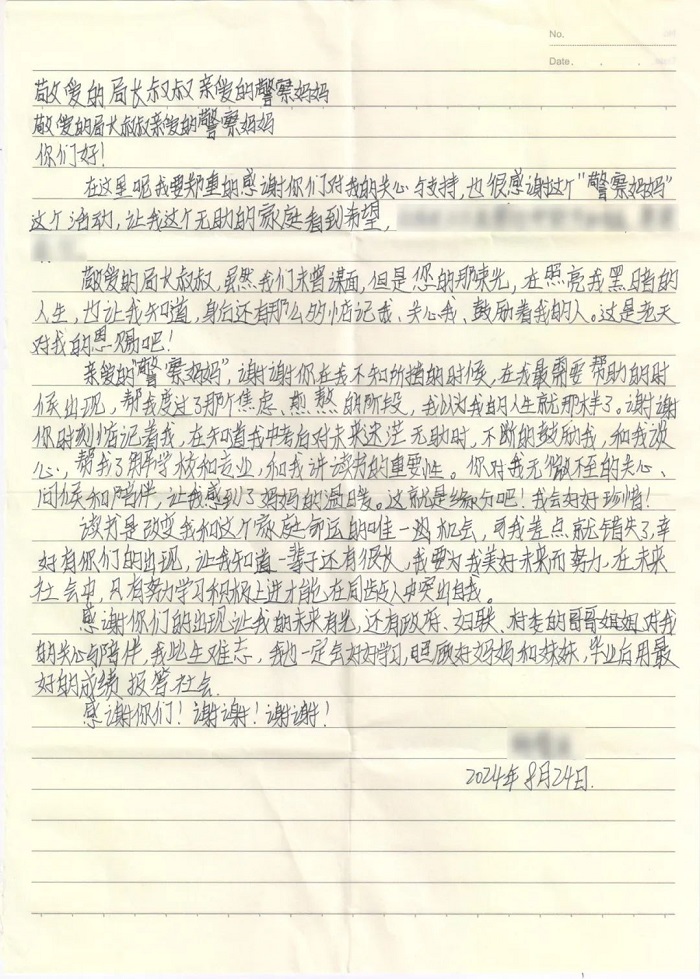 No.
Date. . .
敬爱的局长叔叔亲爱的警察妈妈
敬爱的局长叔叔亲爱的警察妈妈
你们好！
在这里呢我要郑重的感谢你们对我的关心与支持，也很感谢这个“警察妈妈”
这个活动，让我这个无助的家庭看到希望，
敬爱的局长叔叔，虽然我们未曾谋面，但是您的那束光，在照亮我黑暗的
人生，也让我知道，身后还有那么多惦记我、关心我、鼓励着我的人。这是老天
对我的恩赐吧！
亲爱的“警察妈妈”，谢谢你在我不知所措的时候，在我最需要帮助的时
候出现，帮我度过了那个焦虑、煎熬的阶段，我以为我的人生就那样了。谢谢
你时刻惦记着我，在知道我中考后对未来迷茫无助时，不断的鼓励我，和我谈
心，帮我了解学校和专业，和我讲读书的重要性。你对我无微不至的关心、
问候和陪伴，让我感到了妈妈的温暖。这就是缘分吧！我会好好珍惜！
读书是改变我和这个家庭命运的唯一的机会，可我差点就错失了，幸
好有你们的出现，让我知道一辈子还有很长，我要为我美好未来而努力，在未来
社会中，只有努力学习积极上进才能在同龄人中突出自我。
感谢你们的出现让我的未来有光，还有政府、妇联、村委的哥哥姐姐对我
的关心与陪伴，我此生难忘，我也一定会好好学习，照顾好妈妈和妹妹，毕业后用最
好的成绩报答社会.
感谢你们！谢谢！谢谢！
2024年8月24日.